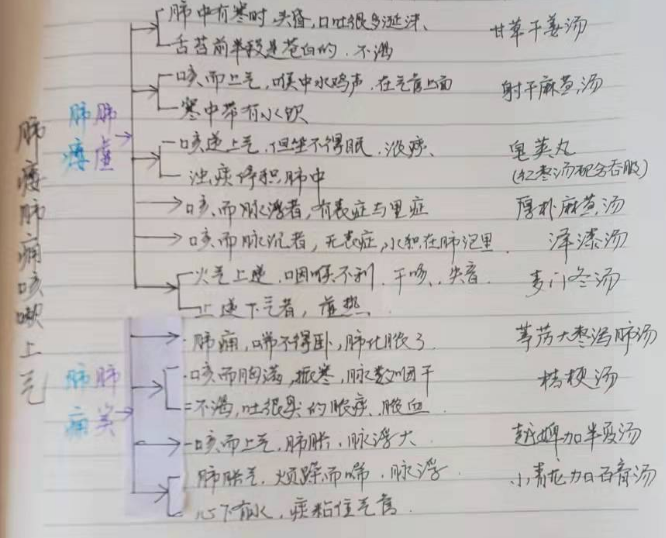 肺痿肺痈咳嗽上气
肺痿 肺虚
肺中有寒时,头昏,口吐很多涎沫、 甘草干姜汤
舌苔前半段是苍白的、不渴
咳而上气,喉中水鸣声,在气管上面 射干麻黄汤
寒中带有水饮
咳逆上气,但坐不得眠,浓痰、 皂荚丸
浊痰停积肺中 (红枣汤配合吞服)
咳而脉浮者,有表症与里症 厚朴麻黄汤
咳而脉沉者,无表症,水积在肺泡里 泽漆汤
火气上逆,咽喉不利,干咳、失音 麦门冬汤
止逆下气者,虚热.
肺痈 肺实
肺痈,喘不得卧,肺化脓了 葶苈大枣泻肺汤
咳而胸满,振寒,脉数咽干 桔梗汤
不渴,吐很臭的脓痰、脓血
咳而上气,肺胀,脉浮大. 越婢加半夏汤
肺胀气,烦躁而喘,脉浮 小青龙加石膏汤
心下有水,痰粘住气管.